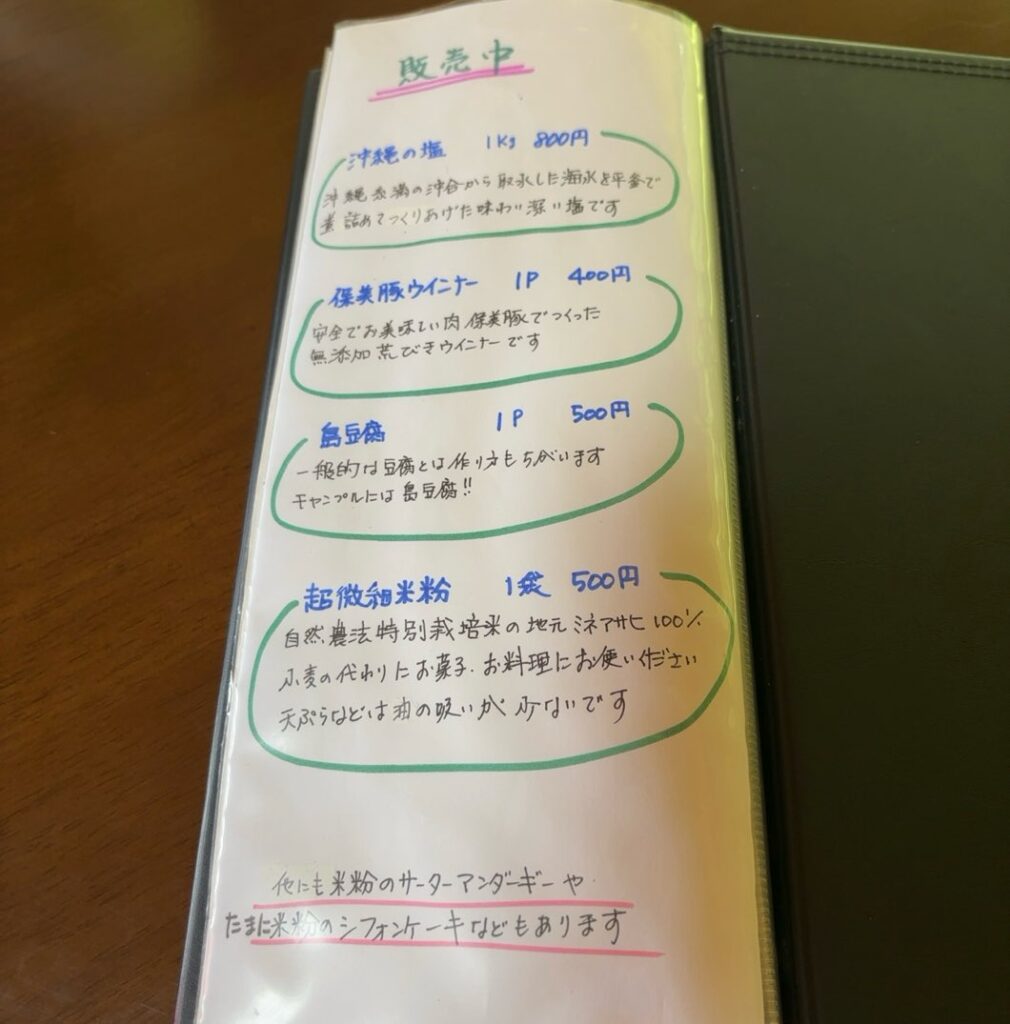 販売中
沖縄の塩 1Kg 800円
沖縄糸満の沖合から取水した海水を平釜で
煮詰めてつくりあげた味わい深い塩です
保美豚ウインナー 1P 400円
安全でお美味しい肉保美豚でつくった
無添加荒びきウインナーです
島豆腐 1P 500円
一般的な豆腐とは作り方もちがいます
チャンプルには島豆腐!!
超微細米粉 1袋 500円
自然農法特別栽培米の地元ミネアサヒ100%
小麦の代わりにお菓子.お料理にお使いください
天ぷらなどは油の吸いが少ないです
他にも米粉のサーターアンダーギーや
たまに米粉のシフォンケーキなどもあります